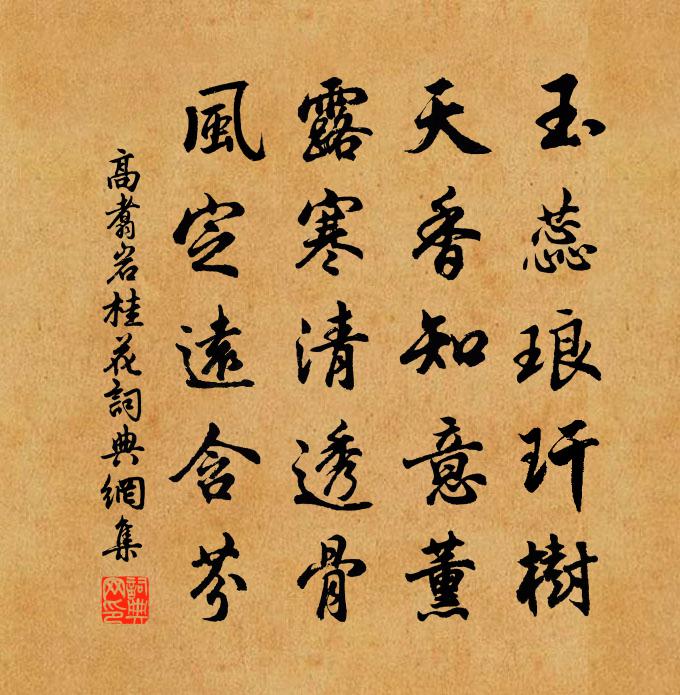 玉蕊琅玕樹
天香知意薰
露寒清透骨
風定遠含芬
高翥岩桂花詞典網集
詞典網印